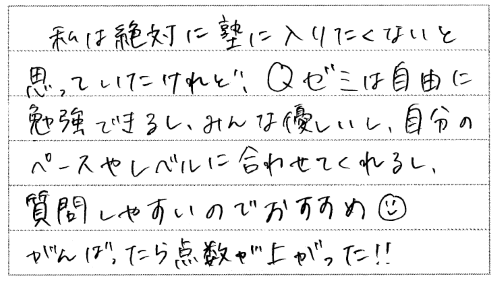 私は絶対に塾に入りたくないと
思っていたけれど、Qゼミは自由に
勉強できるし、みんな優しいし、自分の
ペースやレベルに合わせてくれるし、
質問しやすいのでおすすめ☺
がんばったら点数が上がった!!